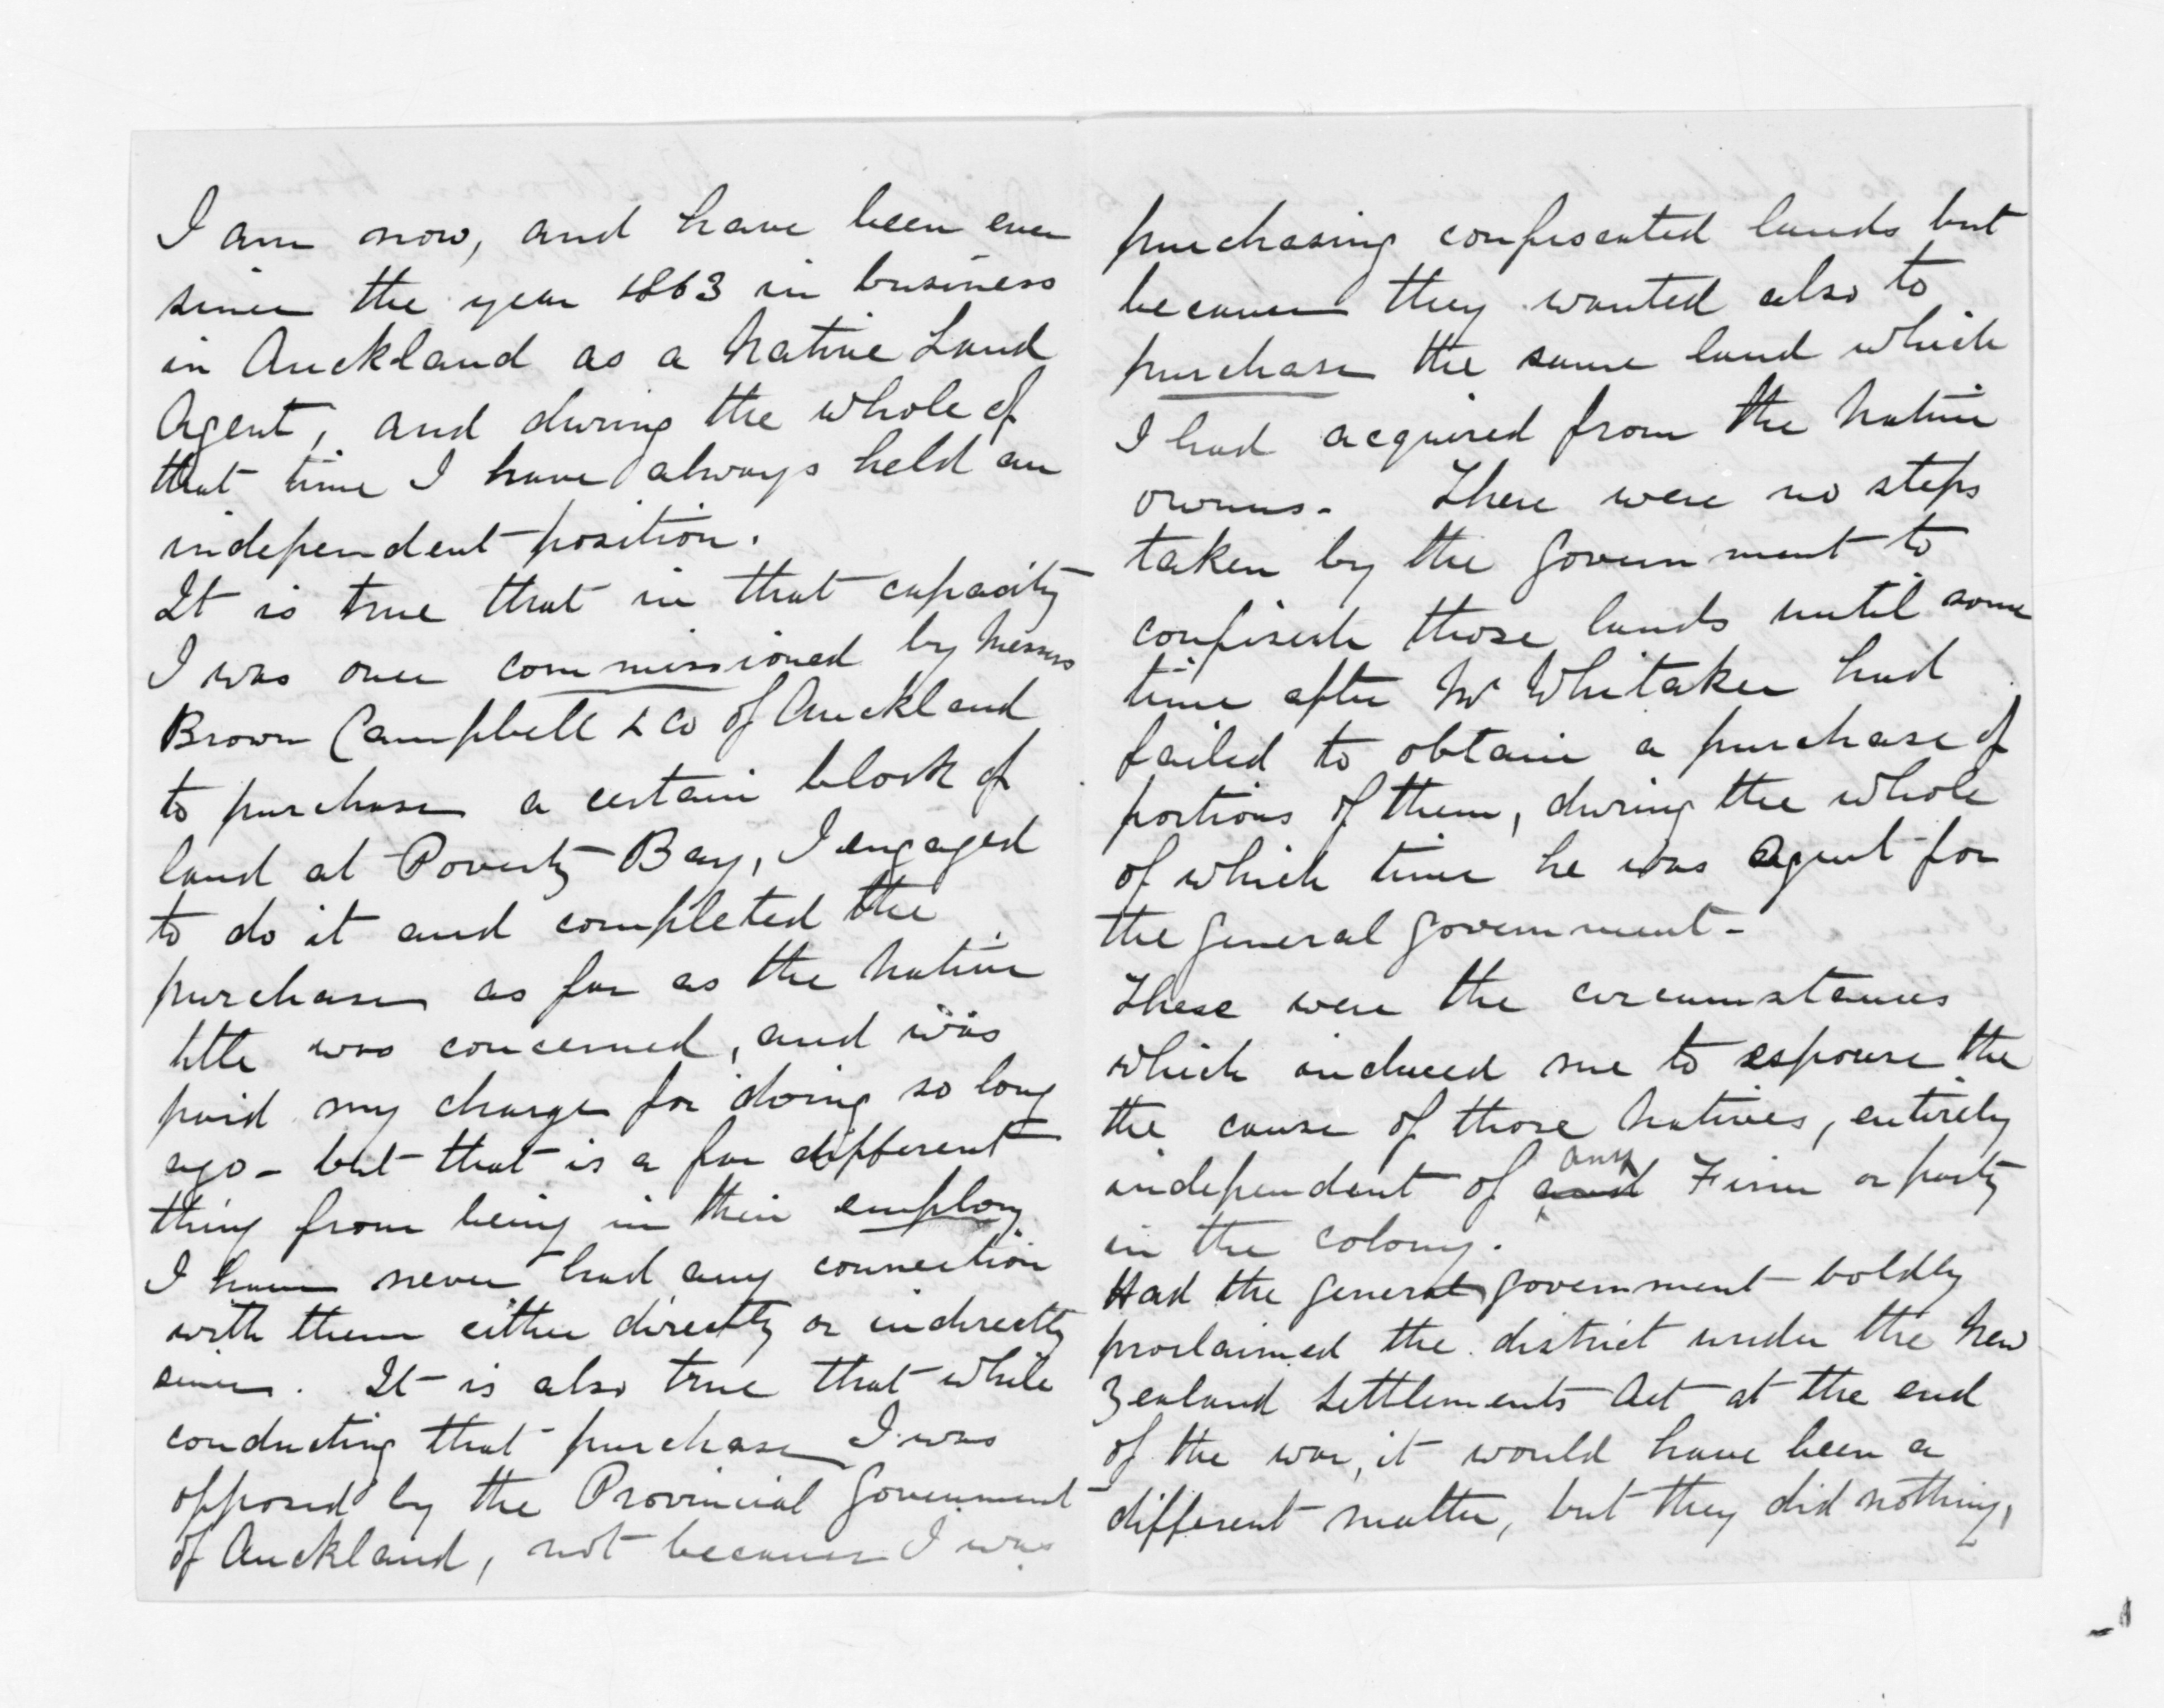 I am now, and have been ever
since the year 1863 in business
in Auckland as a Native Land
Agent, and during the whole of
that time I have always held an
independent position.
It is true that in that capacity
I was once commissioned by Messrs
Brown Campbell & Co of Auckland
to purchase a certain block of
land at Poverty Bay, I engaged
to do it and completed the
purchase as far as the Native
title was concerned, and was
paid my charge for doing so long
ago - but that is a far different
thing from being in their employ
I have never had any connection
with them either directly or indirectly
since. It is also true that while
conducting that purchase I was
opposed by the Provincial Government
of Auckland, not because I was
purchasing confiscated lands but
because they wanted also to
purchase the same land which
I had acquired from the Native
owners - There were no steps
taken by the Government to
confiscate those lands until some
time after Mr Whitaker had
failed to obtain a purchase of
portions of them, during the whole
of which time he was Agent for
the General Government -
These were the circumstances
which induced me to espouse the
the cause of those Natives, entirely
independent of and any Firm or party
in the colony.
Had the General Government boldly
proclaimed the district under the New
Zealand Settlements Act at the end
of the war, it would have been a
different matter, but they did nothing,